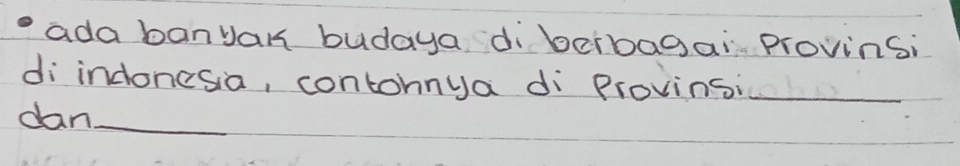 • ada banyak budaya di berbagai Provinsi
di indonesia, contohnya di Provinsi ________
dan ________